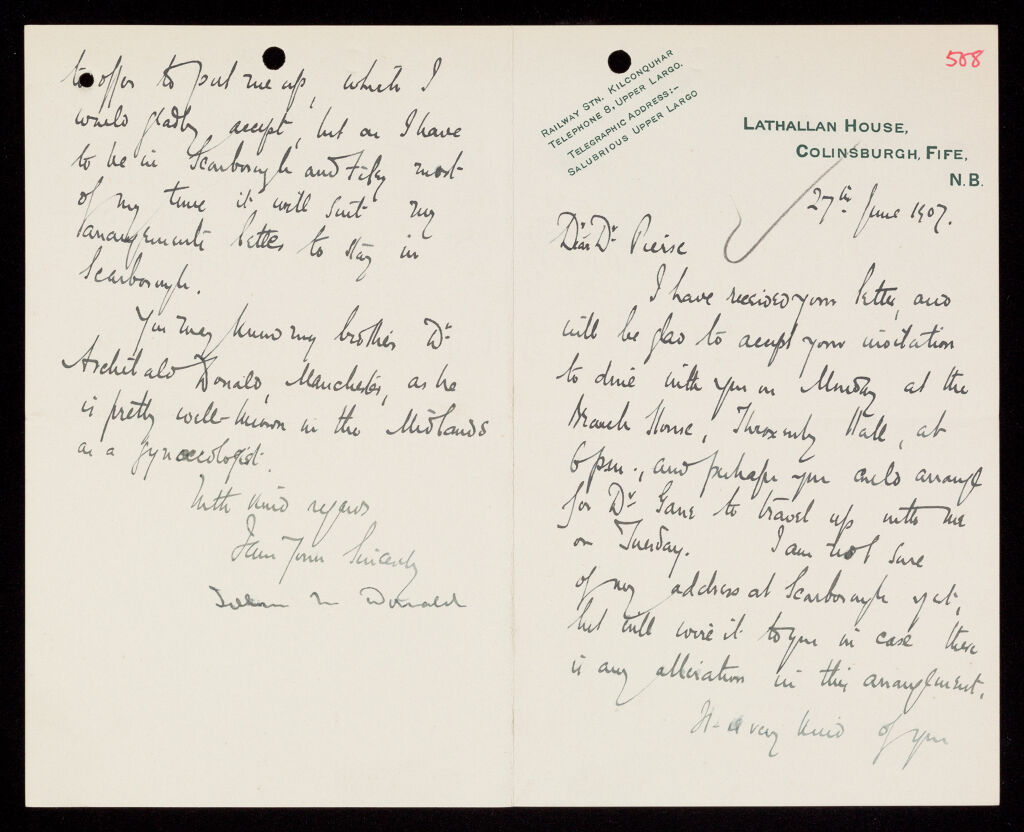 508
RAILWAY STN. KILCONQUHAR
TELEPHONE 8, UPPER LARGO.
TELEGRAPHIC ADDRESS:-
SALUBRIOUS UPPER LARGO
LATHALLAN HOUSE,
COLINSBURGH, FIFE,
N.B.
27th June 1907.
Dear Dr Pierse
I have received your letter, and
will be glad to accept your invitation
to dine with you on Monday at the
Branch House, Throxenby Hall, at
6 p.m., and perhaps you could arrange
for Dr Gane to travel up with me
on Tuesday. I am not sure
of my address at Scarborough yet,
but will wire it to you in case there
is any alteration in this arrangement.
It is very kind of you
to offer to put me up, which I
would gladly accept, but as I have
to be in Scarborough and Filey most
of my time it will suit my
arrangements better to stay in
Scarborough.
You may know my brother Dr
Archibald Donald, Manchester, as he
is pretty well-known in the Midlands
as a gynaecologist.
With kind regards
I am Yours Sincerely
Donald